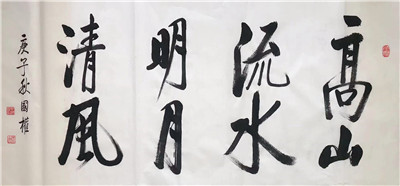 高山
流水
明月
清風
庚子秋國權